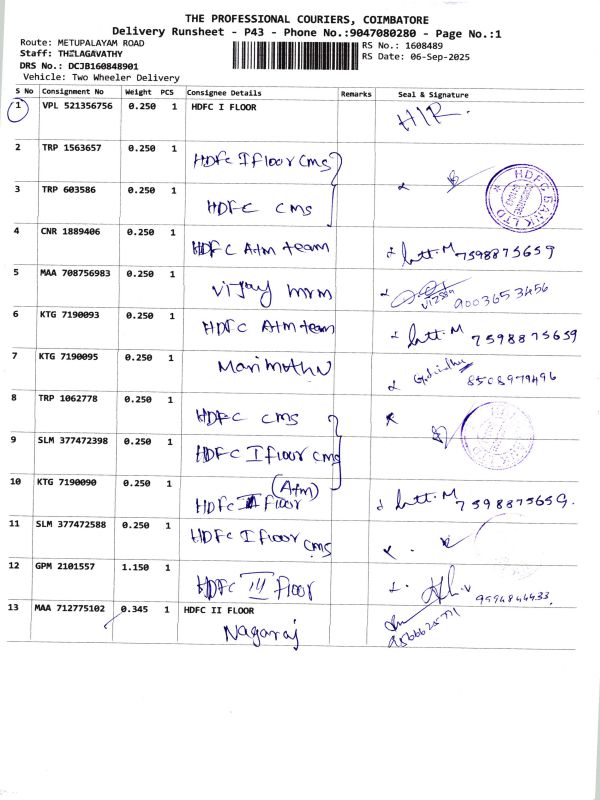 THE PROFESSIONAL COURIERS, COIMBATORE
Delivery Runsheet - P43 - Phone No.:9047080280 - Page No.:1
Route: METUPALAYAM ROAD
Staff: THILAGAVATHY
DRS No.: DCJB160848901
Vehicle: Two Wheeler Delivery
RS No.: 1608489
RS Date: 06-Sep-2025
S No Consignment No Weight PCS Consignee Details Remarks Seal & Signature
1 VPL 521356756 0.250 1 HDFC I FLOOR H/R.
2 TRP 1563657 0.250 1 HDFC I floor cms
3 TRP 603586 0.250 1 HDFC cms
HDFC BANK LTD
4 CNR 1889406 0.250 1 HDFC Atm team 7598875659
5 MAA 708756983 0.250 1 Vijay mrm 9003653456
6 KTG 7190093 0.250 1 HDFC Atm team 7598875659
7 KTG 7190095 0.250 1 Marimuthu 8508979496
8 TRP 1062778 0.250 1 HDFC cms
9 SLM 377472398 0.250 1 HDFC I floor cms
10 KTG 7190090 0.250 1 (Atm) HDFC floor 7598875659.
11 SLM 377472588 0.250 1 HDFC I floor cms
12 GPM 2101557 1.150 1 HDFC III floor 9994844933
13 MAA 712775102 0.345 1 HDFC II FLOOR
Nagaraj